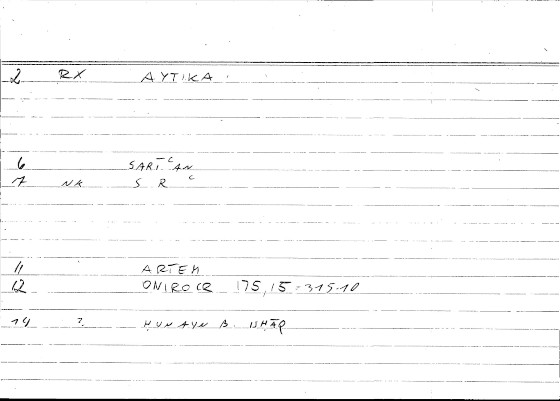 2 RX AYTIKA
6 SARṬ ͨ AN
7 NK S R ͨ
11 ARTEM
12 ONIROCR 175,15 = 315.10
14 ? ḤUNAYN B. ISḤĀQ